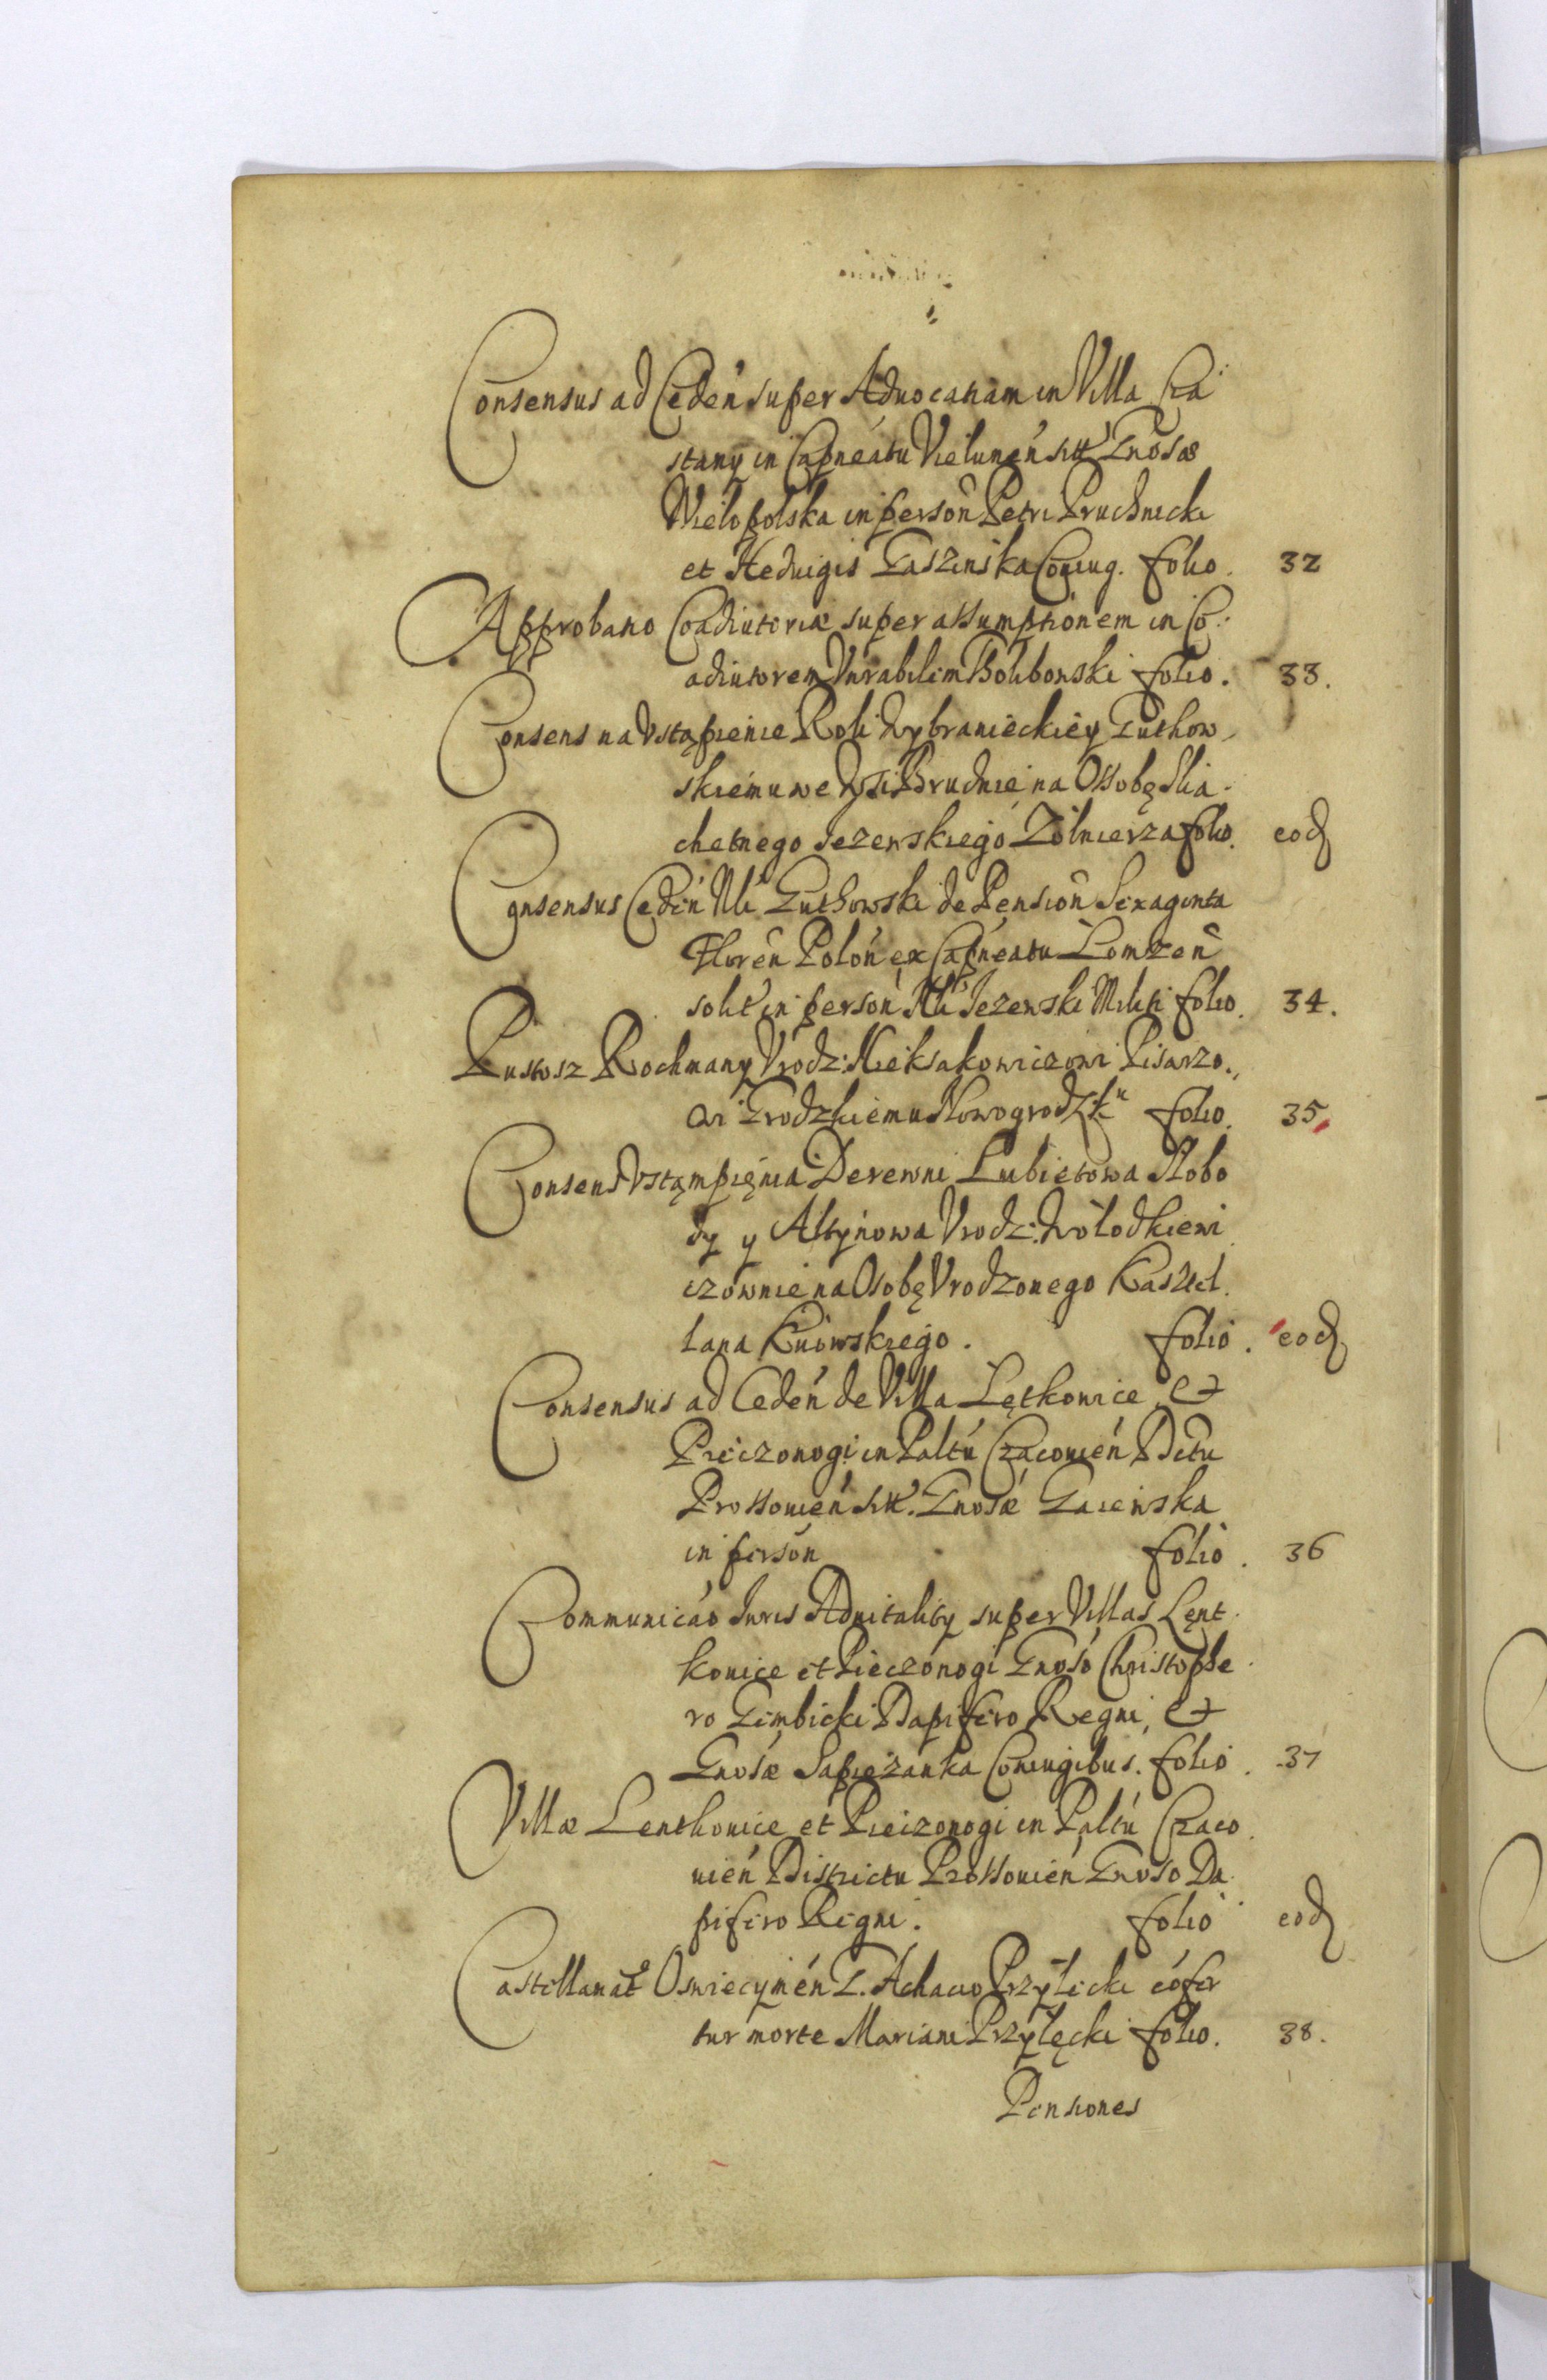 Consensus ad Cedeń super Aduocatiam in Villa Cza
stany in Capneatu Vieluneń sitt Gnosae
Wielopolska in person Petri Pruchnicki
et Heduigis Gaszinska Coniug. folio. 32
Approbatio Coadiutoriæ super assumptionem in Co
adiutorem Vnrabilem Bolibowski folio. 33.
Consens na Vstąpienie Roli Wybranieckiey Gutkow
skiemu we Wsi Brudnie na Ossobę Slia
chetnego Jezewskiego Zołnierza folio. eod
Consensus Cedeń Nli Gutkowski de Pension Sexaginta
Floren Poloń ex Capneatu Lomzeń
solit in person Nli Jezewski Militi folio. 34.
Pustosz Rochmany Vrodz: Kieksakowiczowi Pisarzo,
wi Grodzkiemu Nowogrodzku folio. 35
Consens Vstąmpięnia Derewni Lubietowa Slobo
dy y Altynowa Vrodz: Wołodkiewi
czownie na Osobę Vrodzonego Kasztel
lana Kiiowskiego. folio. eod
Consensus ad Cedeń de Villa Lętkowice et
Pieczonogi in Paltu Cracouień Dctu
Prossouień sitt. Gnosæ
in person folio. 36
Communicao Iuris Aduitality super Villas Lęnt
kouice et Pieczonogi Gnoso Christophe
ro Gembicki Dapifero Regni, et
Gnosæ Sapiezanka Coniugibus. folio. 37
Villæ Lentkouice et Pieczonogi in Paltu Craco
uień Districtu Prossouień Gnoso Da
pifero Regni. folio eod
Castellanat Oswiecymeń G. Achacio Przyłecki cofer
tur morte Mariani Przyłęcki folio. 38.
Pensiones